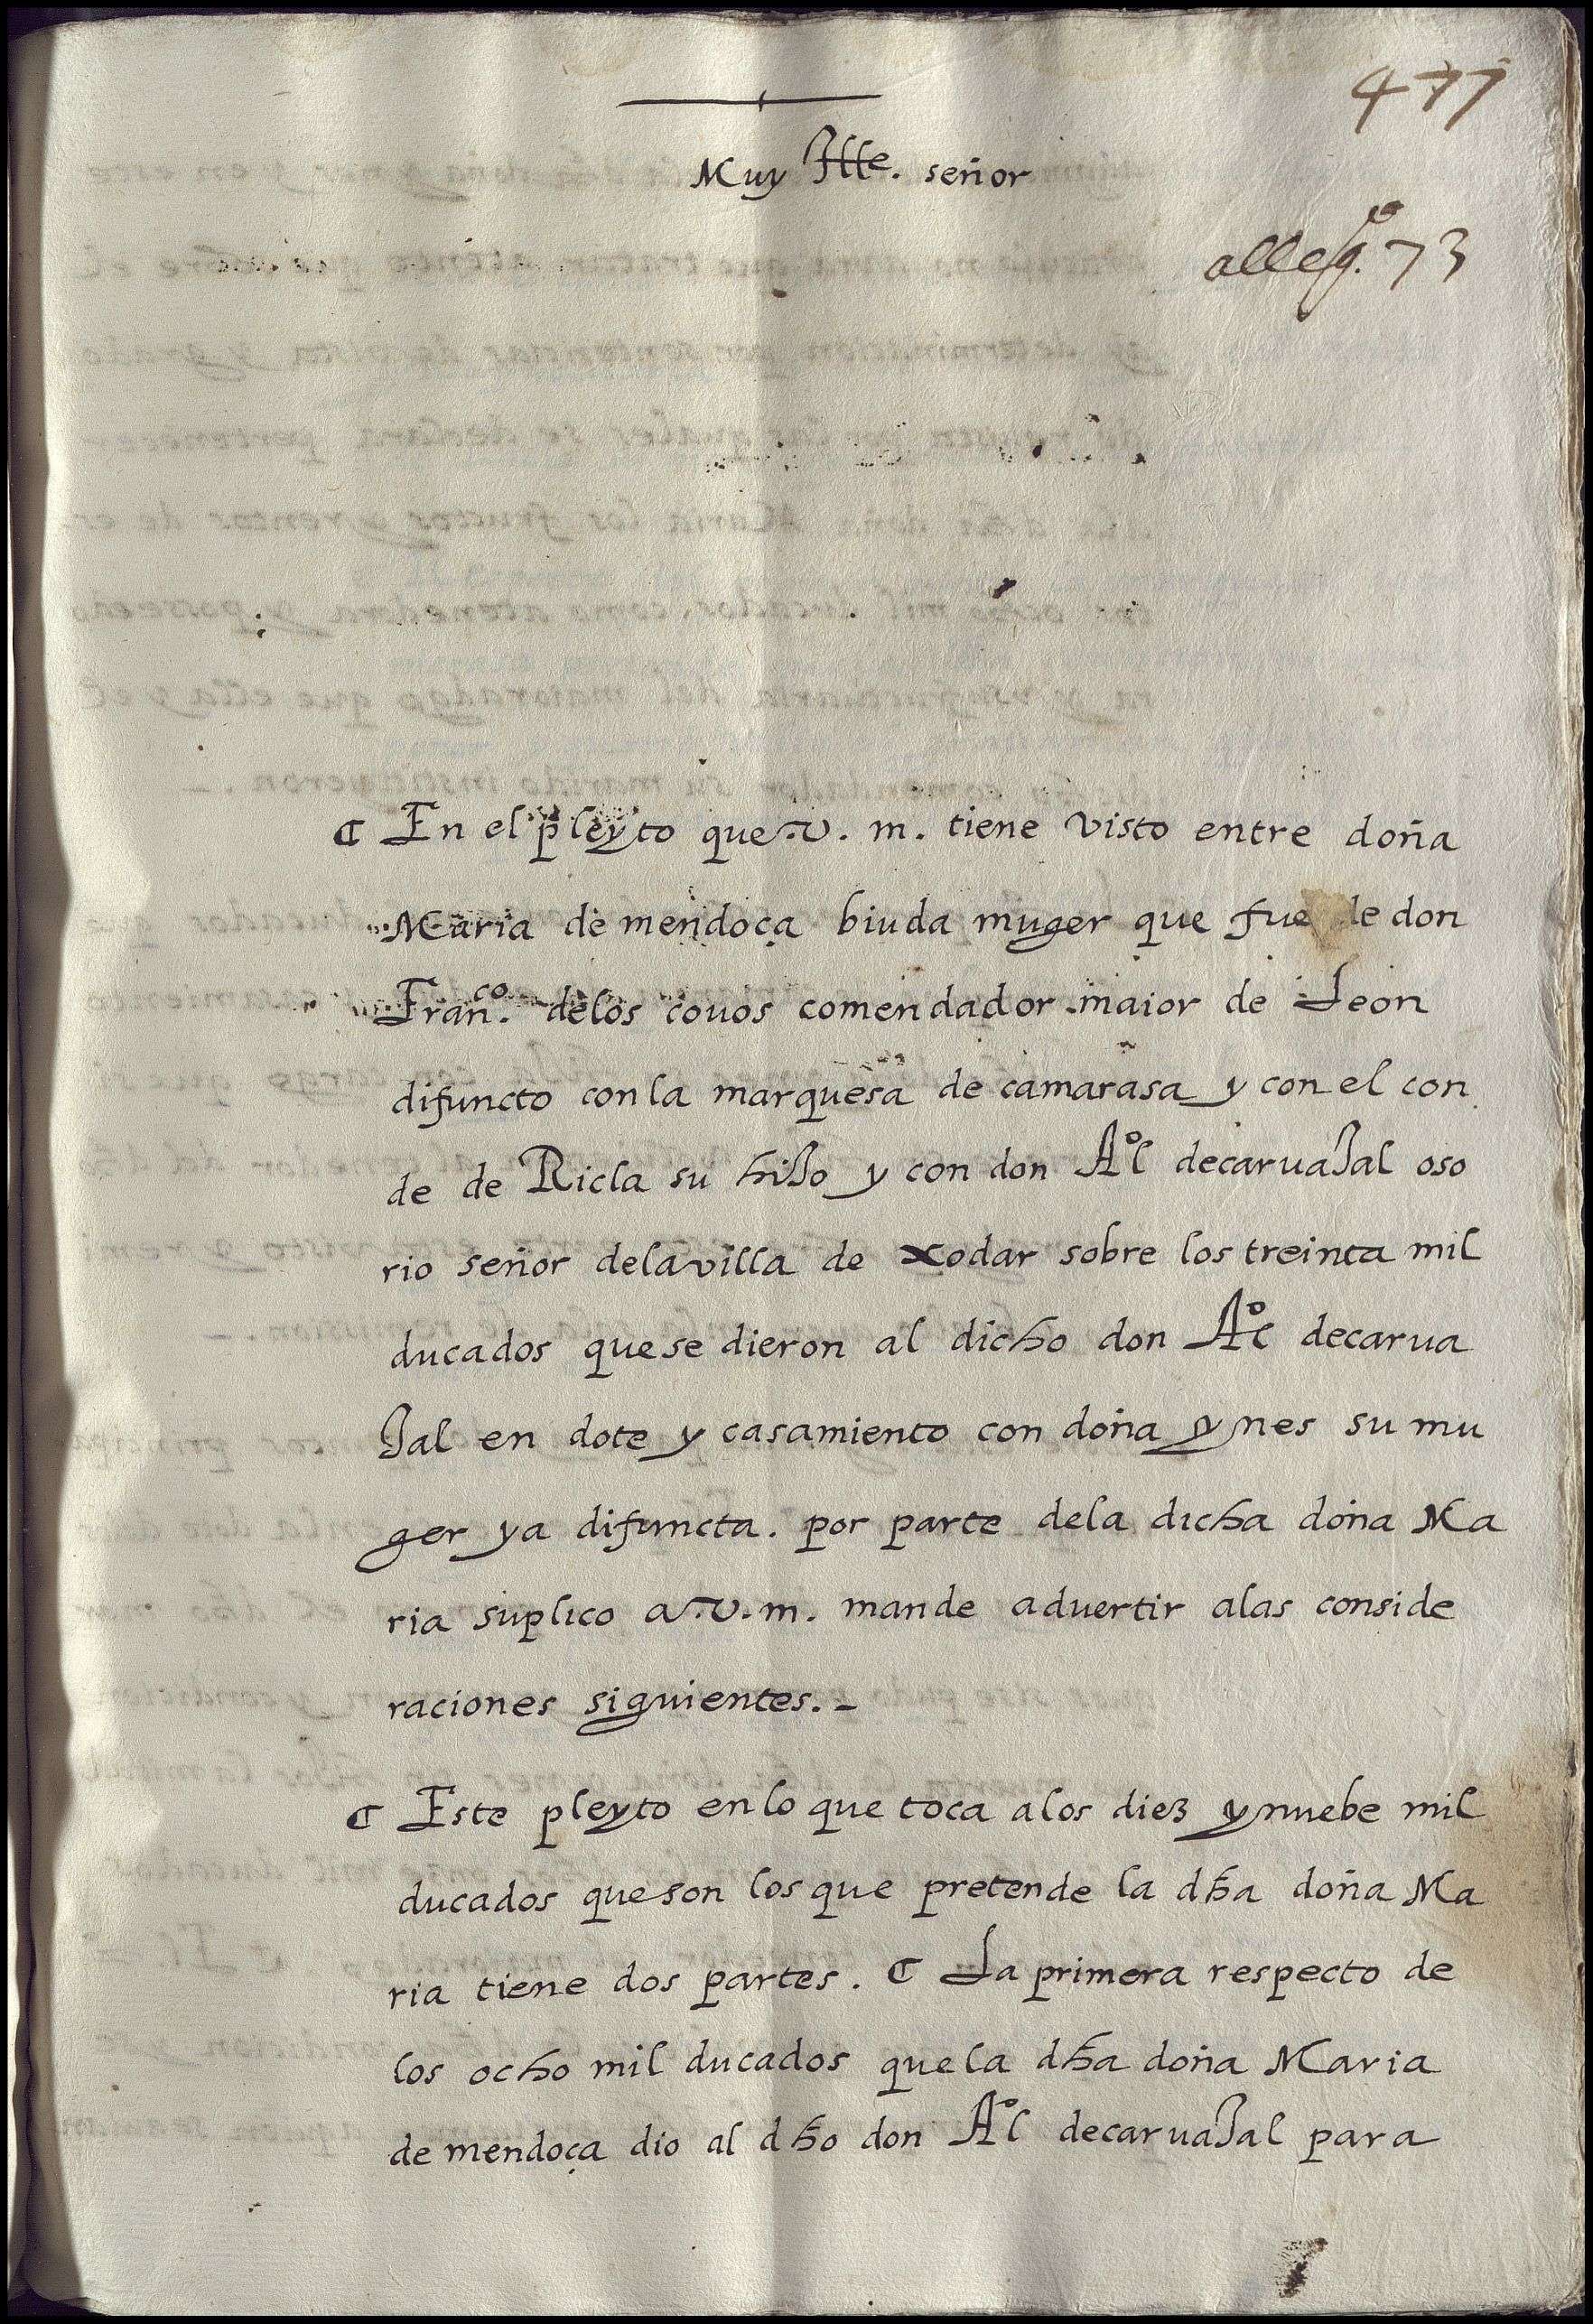 477
Muy Ille. señor
allegº. 73
¶ En el pleyto que .v. m. tiene visto entre doña
Maria de mendoça biuda muger que fue de don
Franco. delos couos comendador maior de Leon
difuncto con la marquesa de camarasa y con el con
de de Ricla su hiJo y con don Alº decaruaJal oso
rio señor dela villa de xodar sobre los treinta mil
ducados que se dieron al dicho don Alº decarua
Jal en dote y casamiento con doña ynes su mu
ger ya difuncta. por parte dela dicha doña Ma
ria suplico a .v. m. mande aduertir alas conside
raciones siguientes. -
¶ Este pleyto en lo que toca a los diez y nuebe mil
ducados que son los que pretende la dha doña Ma
ria tiene dos partes. ¶ La primera respecto de
los ocho mil ducados que la dha doña Maria
de mendoça dio al dho don Alº decaruaJal para